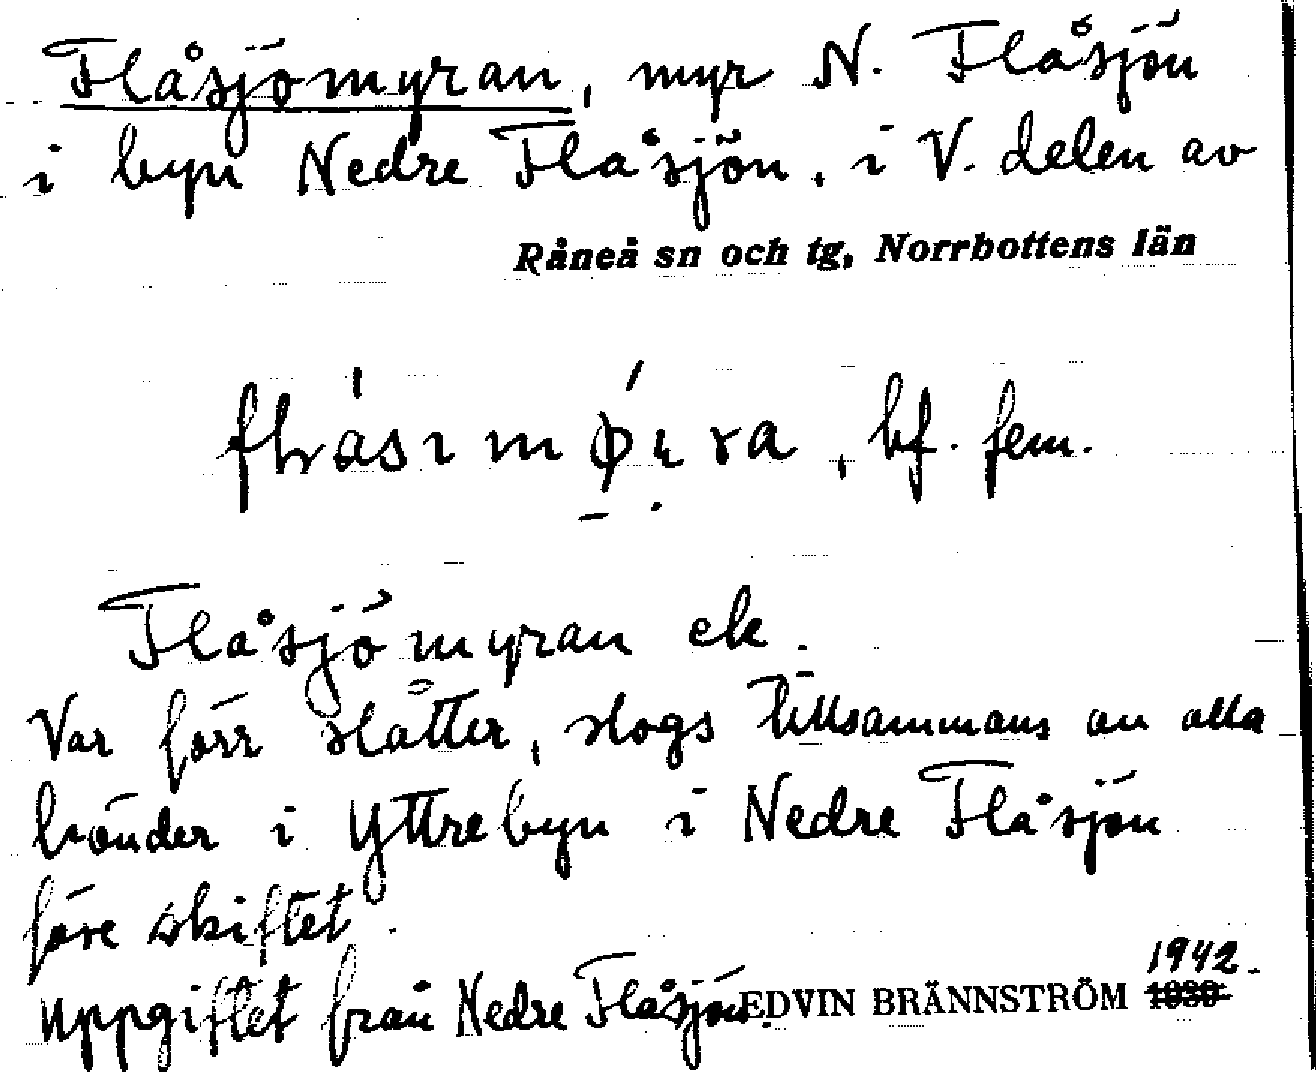 Flåsjömyran, myr N. Flåsjön
i byn Nedre Flåsjön, i V. delen av
Råneå sn och tg, Norrbottens län
, bf. fem.
Flåsjömyran ek.
Var förr slåtter, slogs tillsammans av alla
bönder i Yttrebyn i Nedre Flåsjön
före skiftet.
Uppgiftet från Nedre Flåsjön. EDVIN BRÄNNSTRÖM 1942.